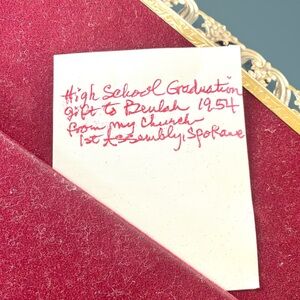 High School Graduation
gift to Beulah 1954
from my Church
1st Assembly, Spokane